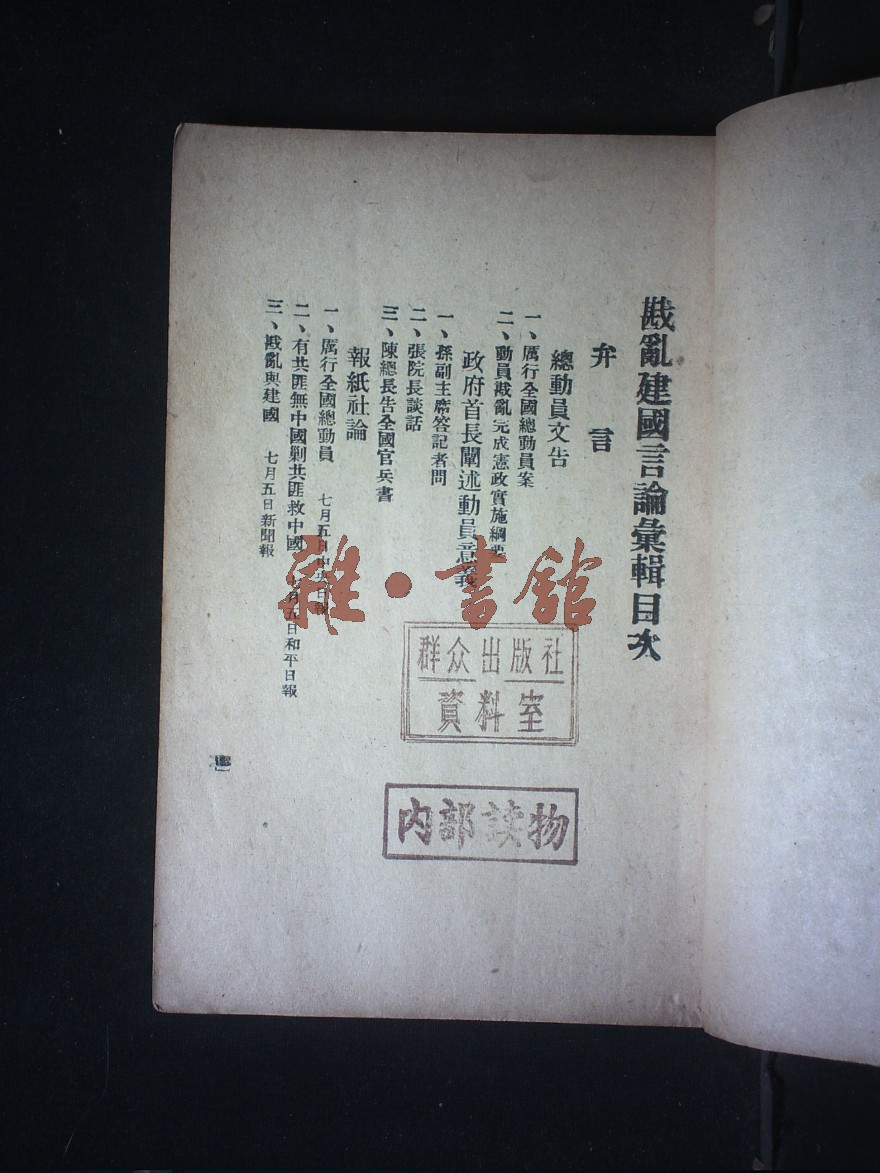 戡亂建國言論彙輯目次
弁言
總動員文告
一、厲行全國總動員案
二、動員戡亂完成憲政實施綱要
政府首長闡述動員意義
一、孫副主席答記者問
二、張院長談話
三、陳總長告全國官兵書
報紙社論
一、厲行全國總動員 七月五日中央日報
二、有共匪無中國剿共匪救中國 七月五日和平日報
三、戡亂與建國 七月五日新聞報
雜·書館
群众出版社
資料室
内部读物